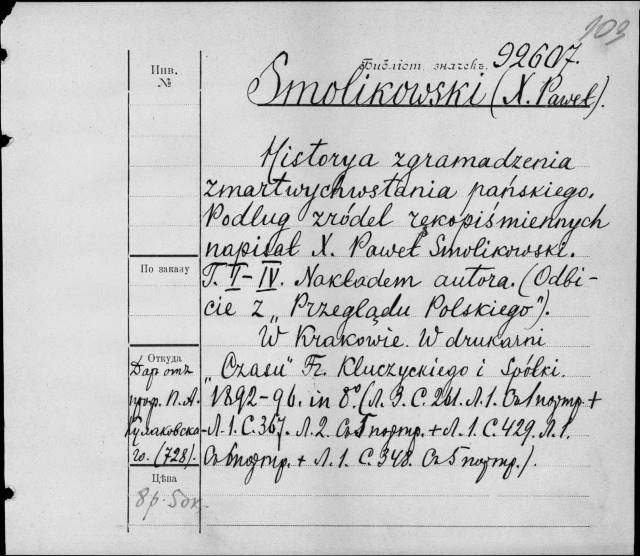 109
Библіот. значекъ. 92607.
Инв.
№
Smolikowski (X. Paweł).
Historya zgramadzenia
zmartwychwstania pańskiego.
Podług zródel rękopiśmiennych
napisał X. Paweł Smolikowski.
По заказу
T. I–IV. Nakładem autora. (Odbi-
cie z „Przeglądu Polskiego").
W Krakowie. W drukarni
Откуда
„Czasu" Fr. Kluczyckiego i Spółki.
Даръ отъ
проф. П. А.
Кулаковска-
го. (728).
1892–96. in 8° (Л. 3. С. 261. Л. 1. Съ 1 портр. +
Л. 1. С. 367. Л. 2. Съ 5 портр. + Л. 1. С. 429. Л. 1.
Съ 6 портр. + Л. 1. С. 348. Съ 5 портр.).
Цѣна
8 р. 50 к.